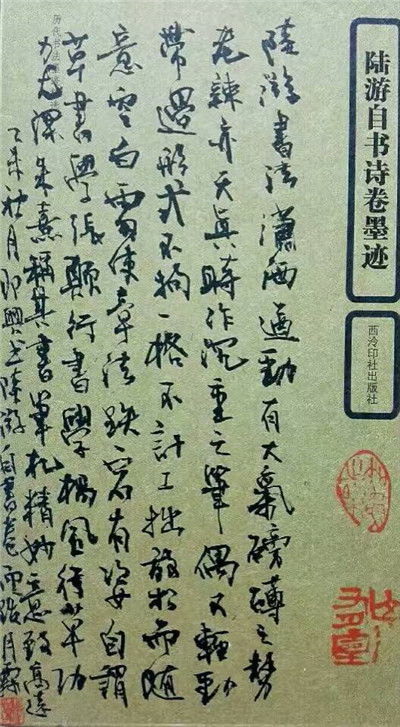 陆游自书诗卷墨迹
西泠印社出版社
陸游書法瀟洒遒動有大氣磅礴之勢
老辣亦天真時作沉重之筆偶又輕動
帶過形式不拘一格不計工拙放松而隨
意空白使章法跌宕有姿自謂
草書學張顛行書學楊風行草功
力尤深朱熹稱其書筆札精妙意致高遠
乙未秋月即興陸游自書卷月霖
历代书法